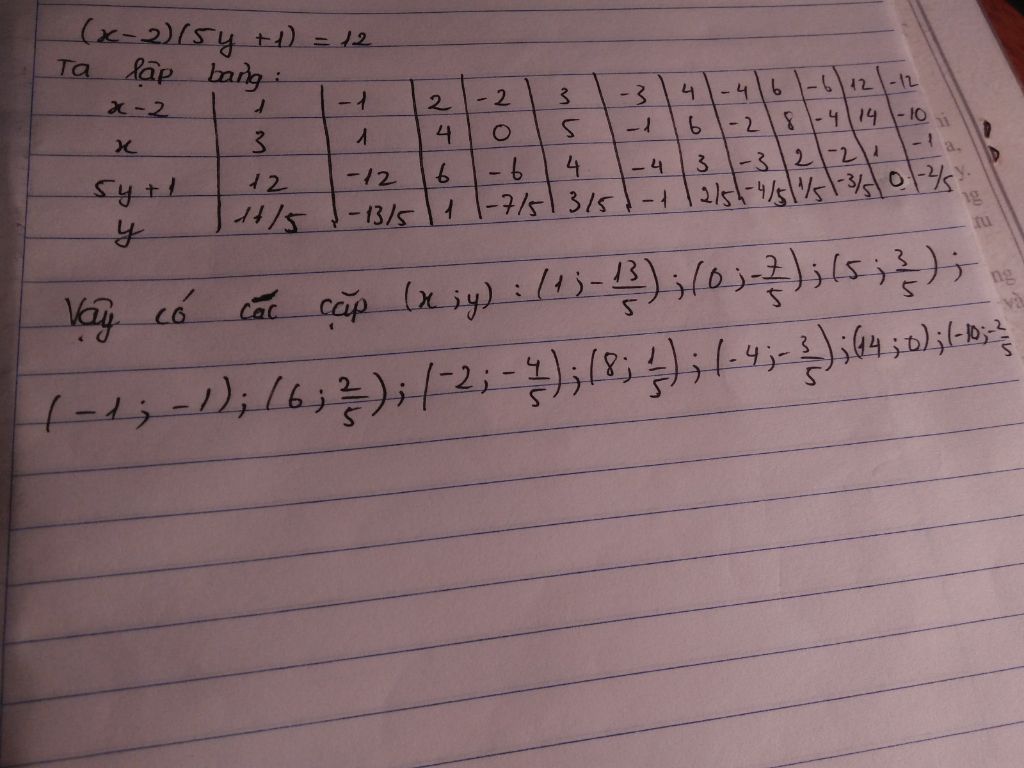 (x-2)(5y+1) = 12
Ta lập bảng:
x-2 | 1 | -1 | 2 | -2 | 3 | -3 | 4 | -4 | 6 | -6 | 12 | -12
x | 3 | 1 | 4 | 0 | 5 | -1 | 6 | -2 | 8 | -4 | 14 | -10
5y+1 | 12 | -12 | 6 | -6 | 4 | -4 | 3 | -3 | 2 | -2 | 1 | -1
y | 11/5 | -13/5 | 1 | -7/5 | 3/5 | -1 | 2/5 | -4/5 | 1/5 | -3/5 | 0 | -2/5
Vậy có các cặp (x;y) : (1;-13/5);(0;-7/5);(5;3/5);
(-1;-1);(6;2/5);(-2;-4/5);(8;1/5);(-4;-3/5);(14;0);(-10;-2/5